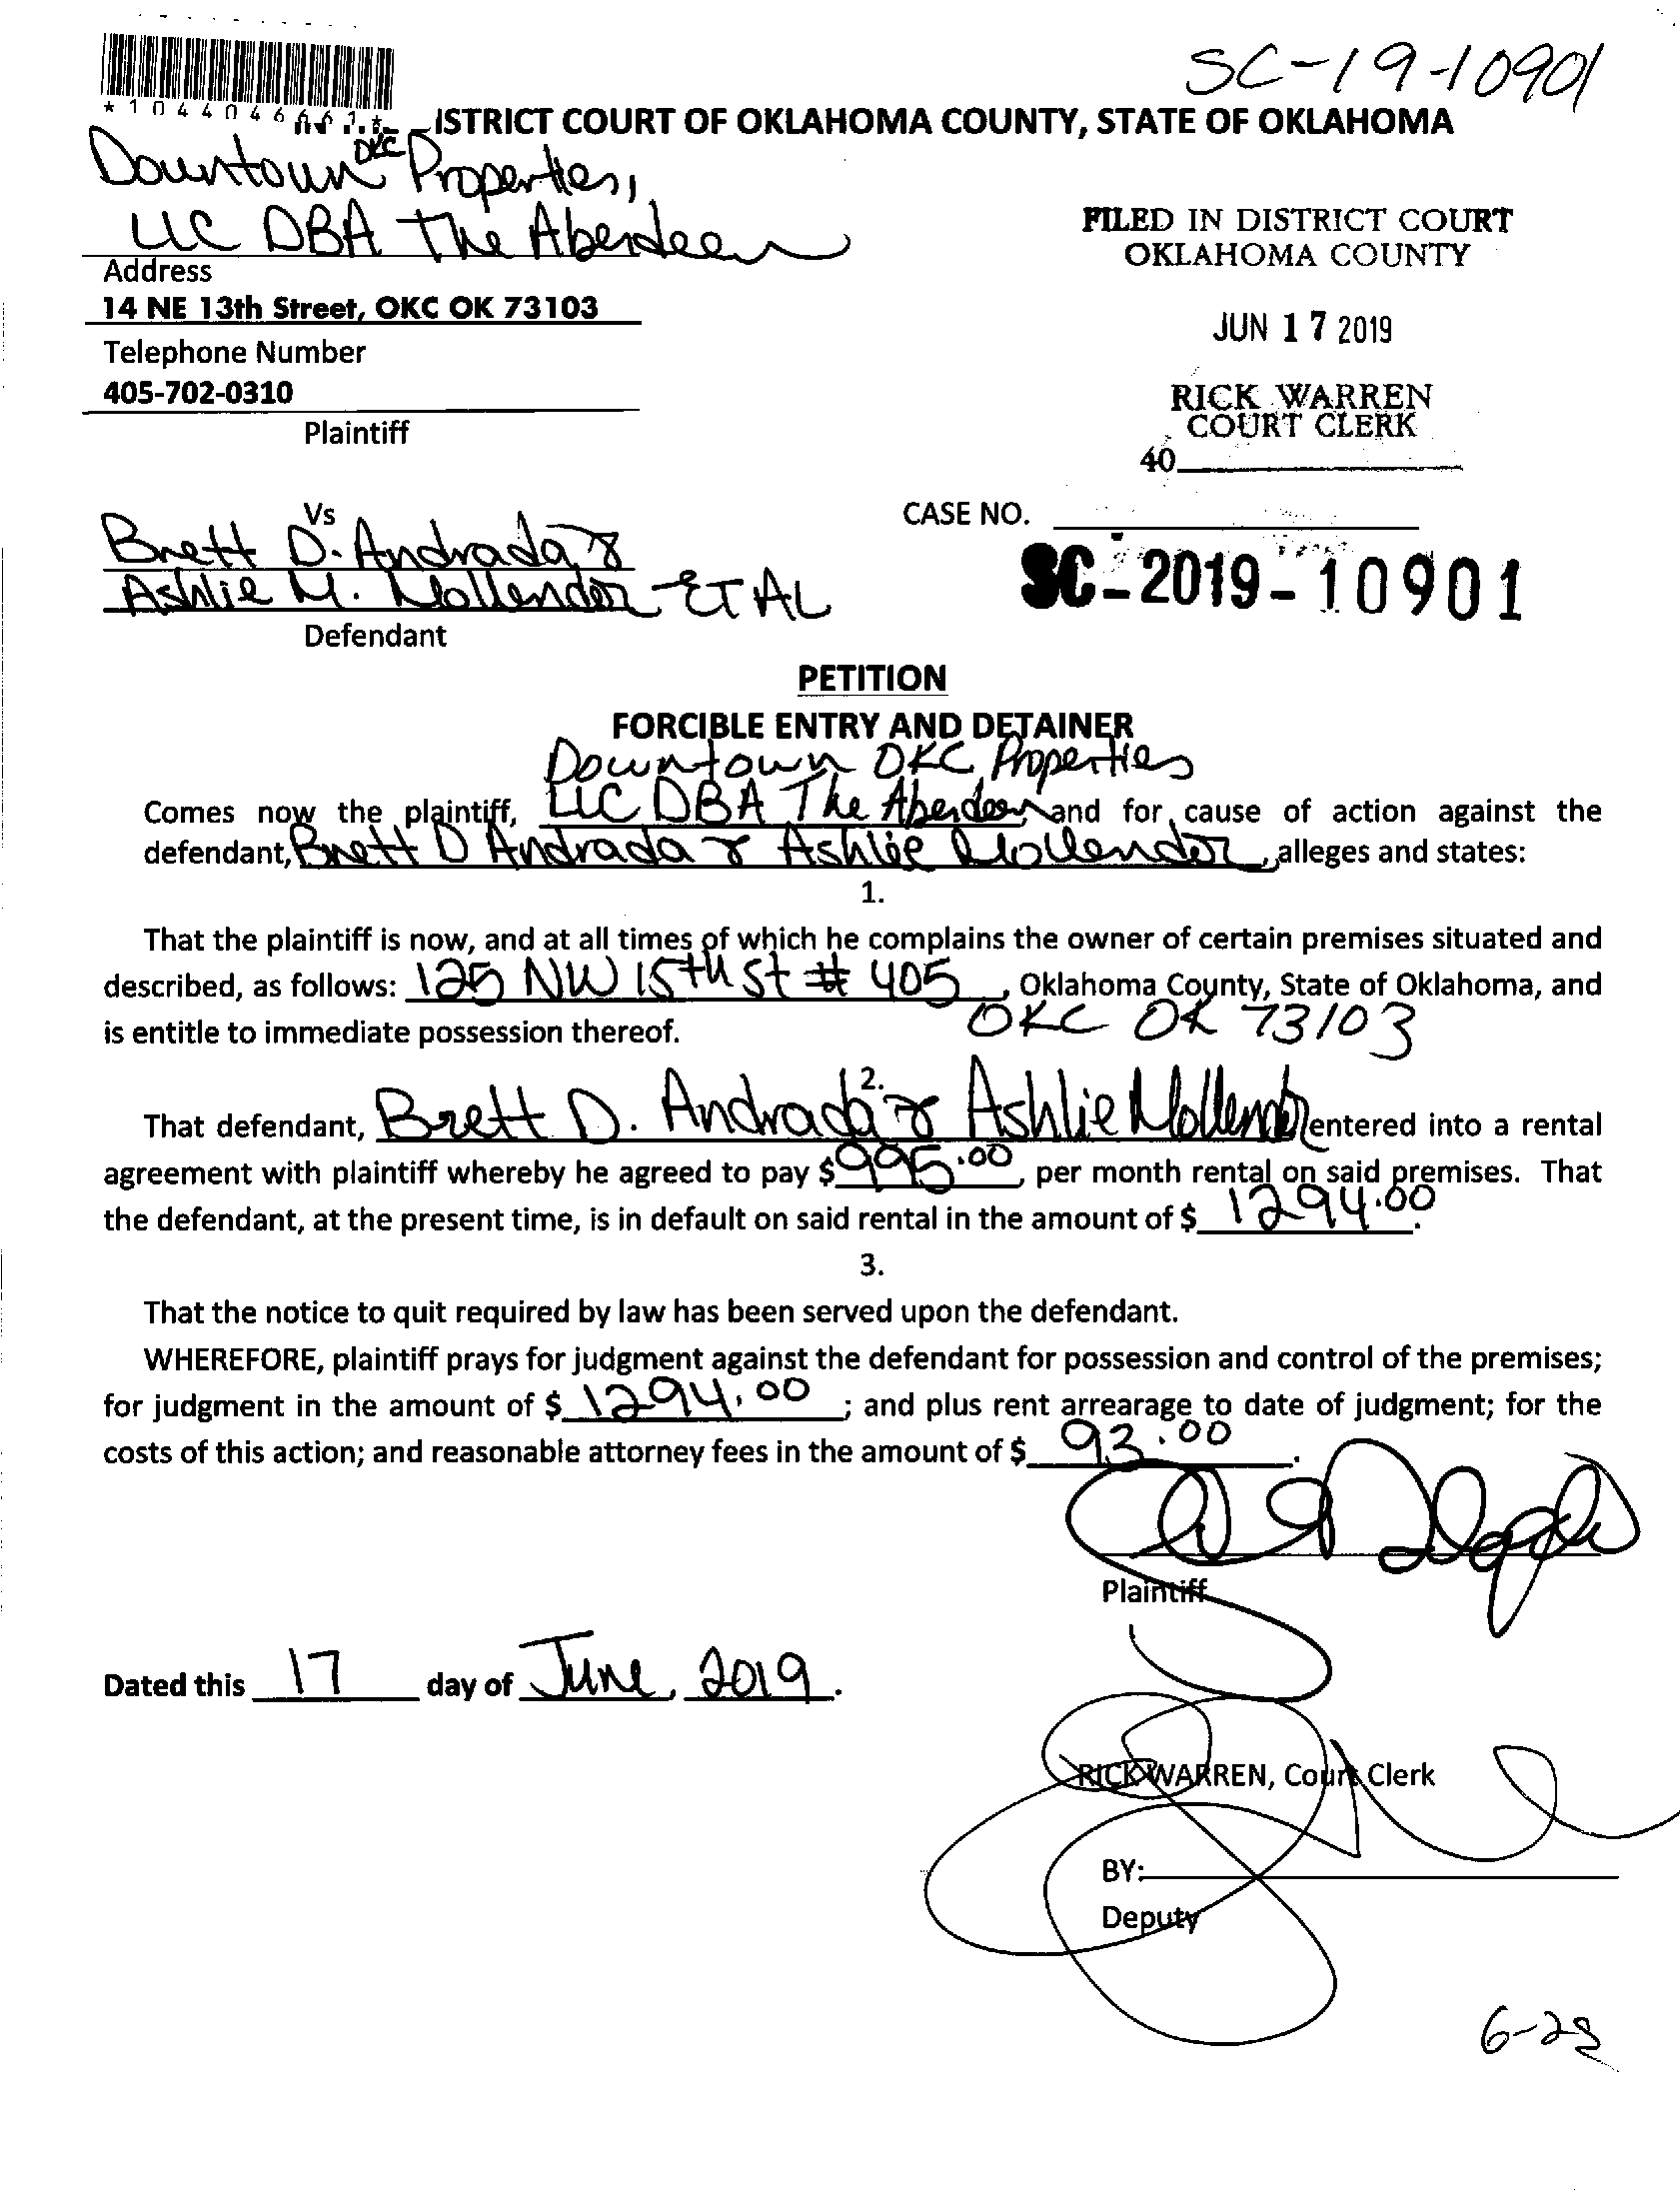 SC-19-10901
*1044046661*
ISTRICT COURT OF OKLAHOMA COUNTY, STATE OF OKLAHOMA
Downtown OKC Properties,
LLC DBA The Aberdeen
Address
14 NE 13th Street, OKC OK 73103
Telephone Number
405-702-0310
Plaintiff
FILED IN DISTRICT COURT
OKLAHOMA COUNTY
JUN 17 2019
RICK WARREN
COURT CLERK
40
Vs
Brett D. Andrada &
Ashlie M. Mollendor ET AL
Defendant
CASE NO.
SC-2019-10901
PETITION
FORCIBLE ENTRY AND DETAINER
Downtown OKC Properties
Comes now the plaintiff, LLC DBA The Aberdeen and for cause of action against the
defendant, Brett D Andrada & Ashlie Mollendor, alleges and states:
1.
That the plaintiff is now, and at all times of which he complains the owner of certain premises situated and
described, as follows: 125 NW 15th St # 405, Oklahoma County, State of Oklahoma, and
is entitle to immediate possession thereof. OKC OK 73103
2.
That defendant, Brett D. Andrada & Ashlie Mollendor entered into a rental
agreement with plaintiff whereby he agreed to pay $ 995.00, per month rental on said premises. That
the defendant, at the present time, is in default on said rental in the amount of $ 1294.00.
3.
That the notice to quit required by law has been served upon the defendant.
WHEREFORE, plaintiff prays for judgment against the defendant for possession and control of the premises;
for judgment in the amount of $ 1294.00; and plus rent arrearage to date of judgment; for the
costs of this action; and reasonable attorney fees in the amount of $ 93.00.
Plaintiff
Dated this 17 day of June, 2019.
RICK WARREN, Court Clerk
BY:
Deputy
6-28